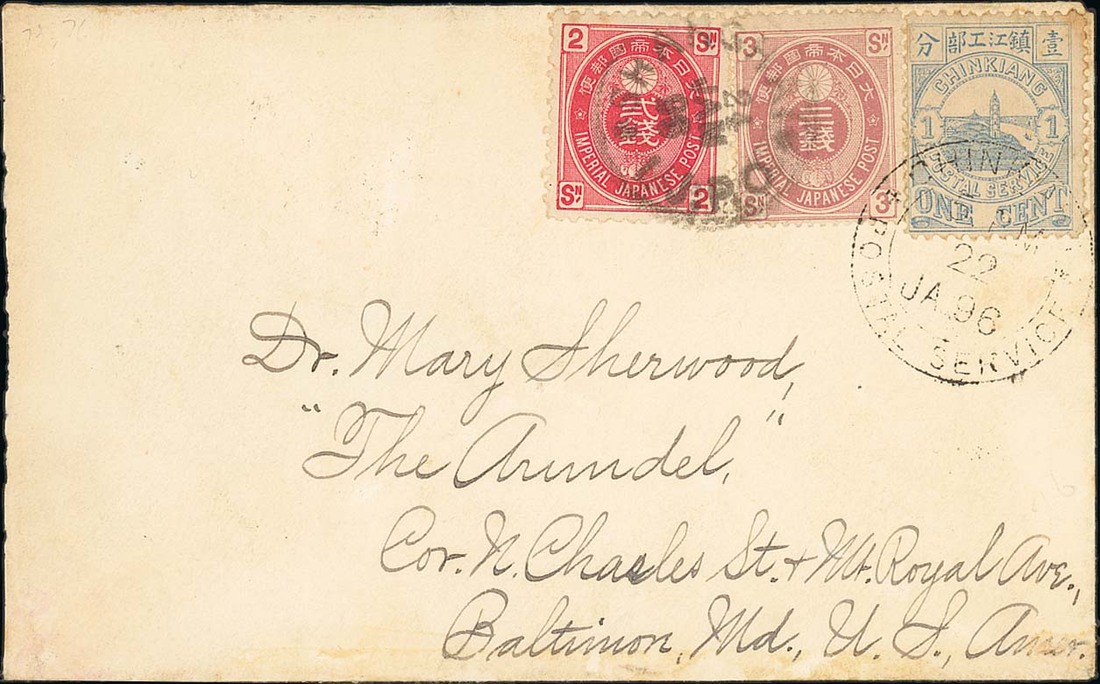 2 SN
大日本帝國郵便
貳錢
IMPERIAL JAPANESE POST
SN 2
3 SN
大日本帝國郵便
三錢
IMPERIAL JAPANESE POST
SN 3
分 部工江鎮 壹
CHINKIANG
1 1
POSTAL SERVICE
ONE CENT
22
JA 96
POSTAL SERVICE
Dr. Mary Sherwood,
"The Arundel,"
Cor. N. Charles St. + Mt. Royal Ave.,
Baltimon, Md., U. S. Amer.